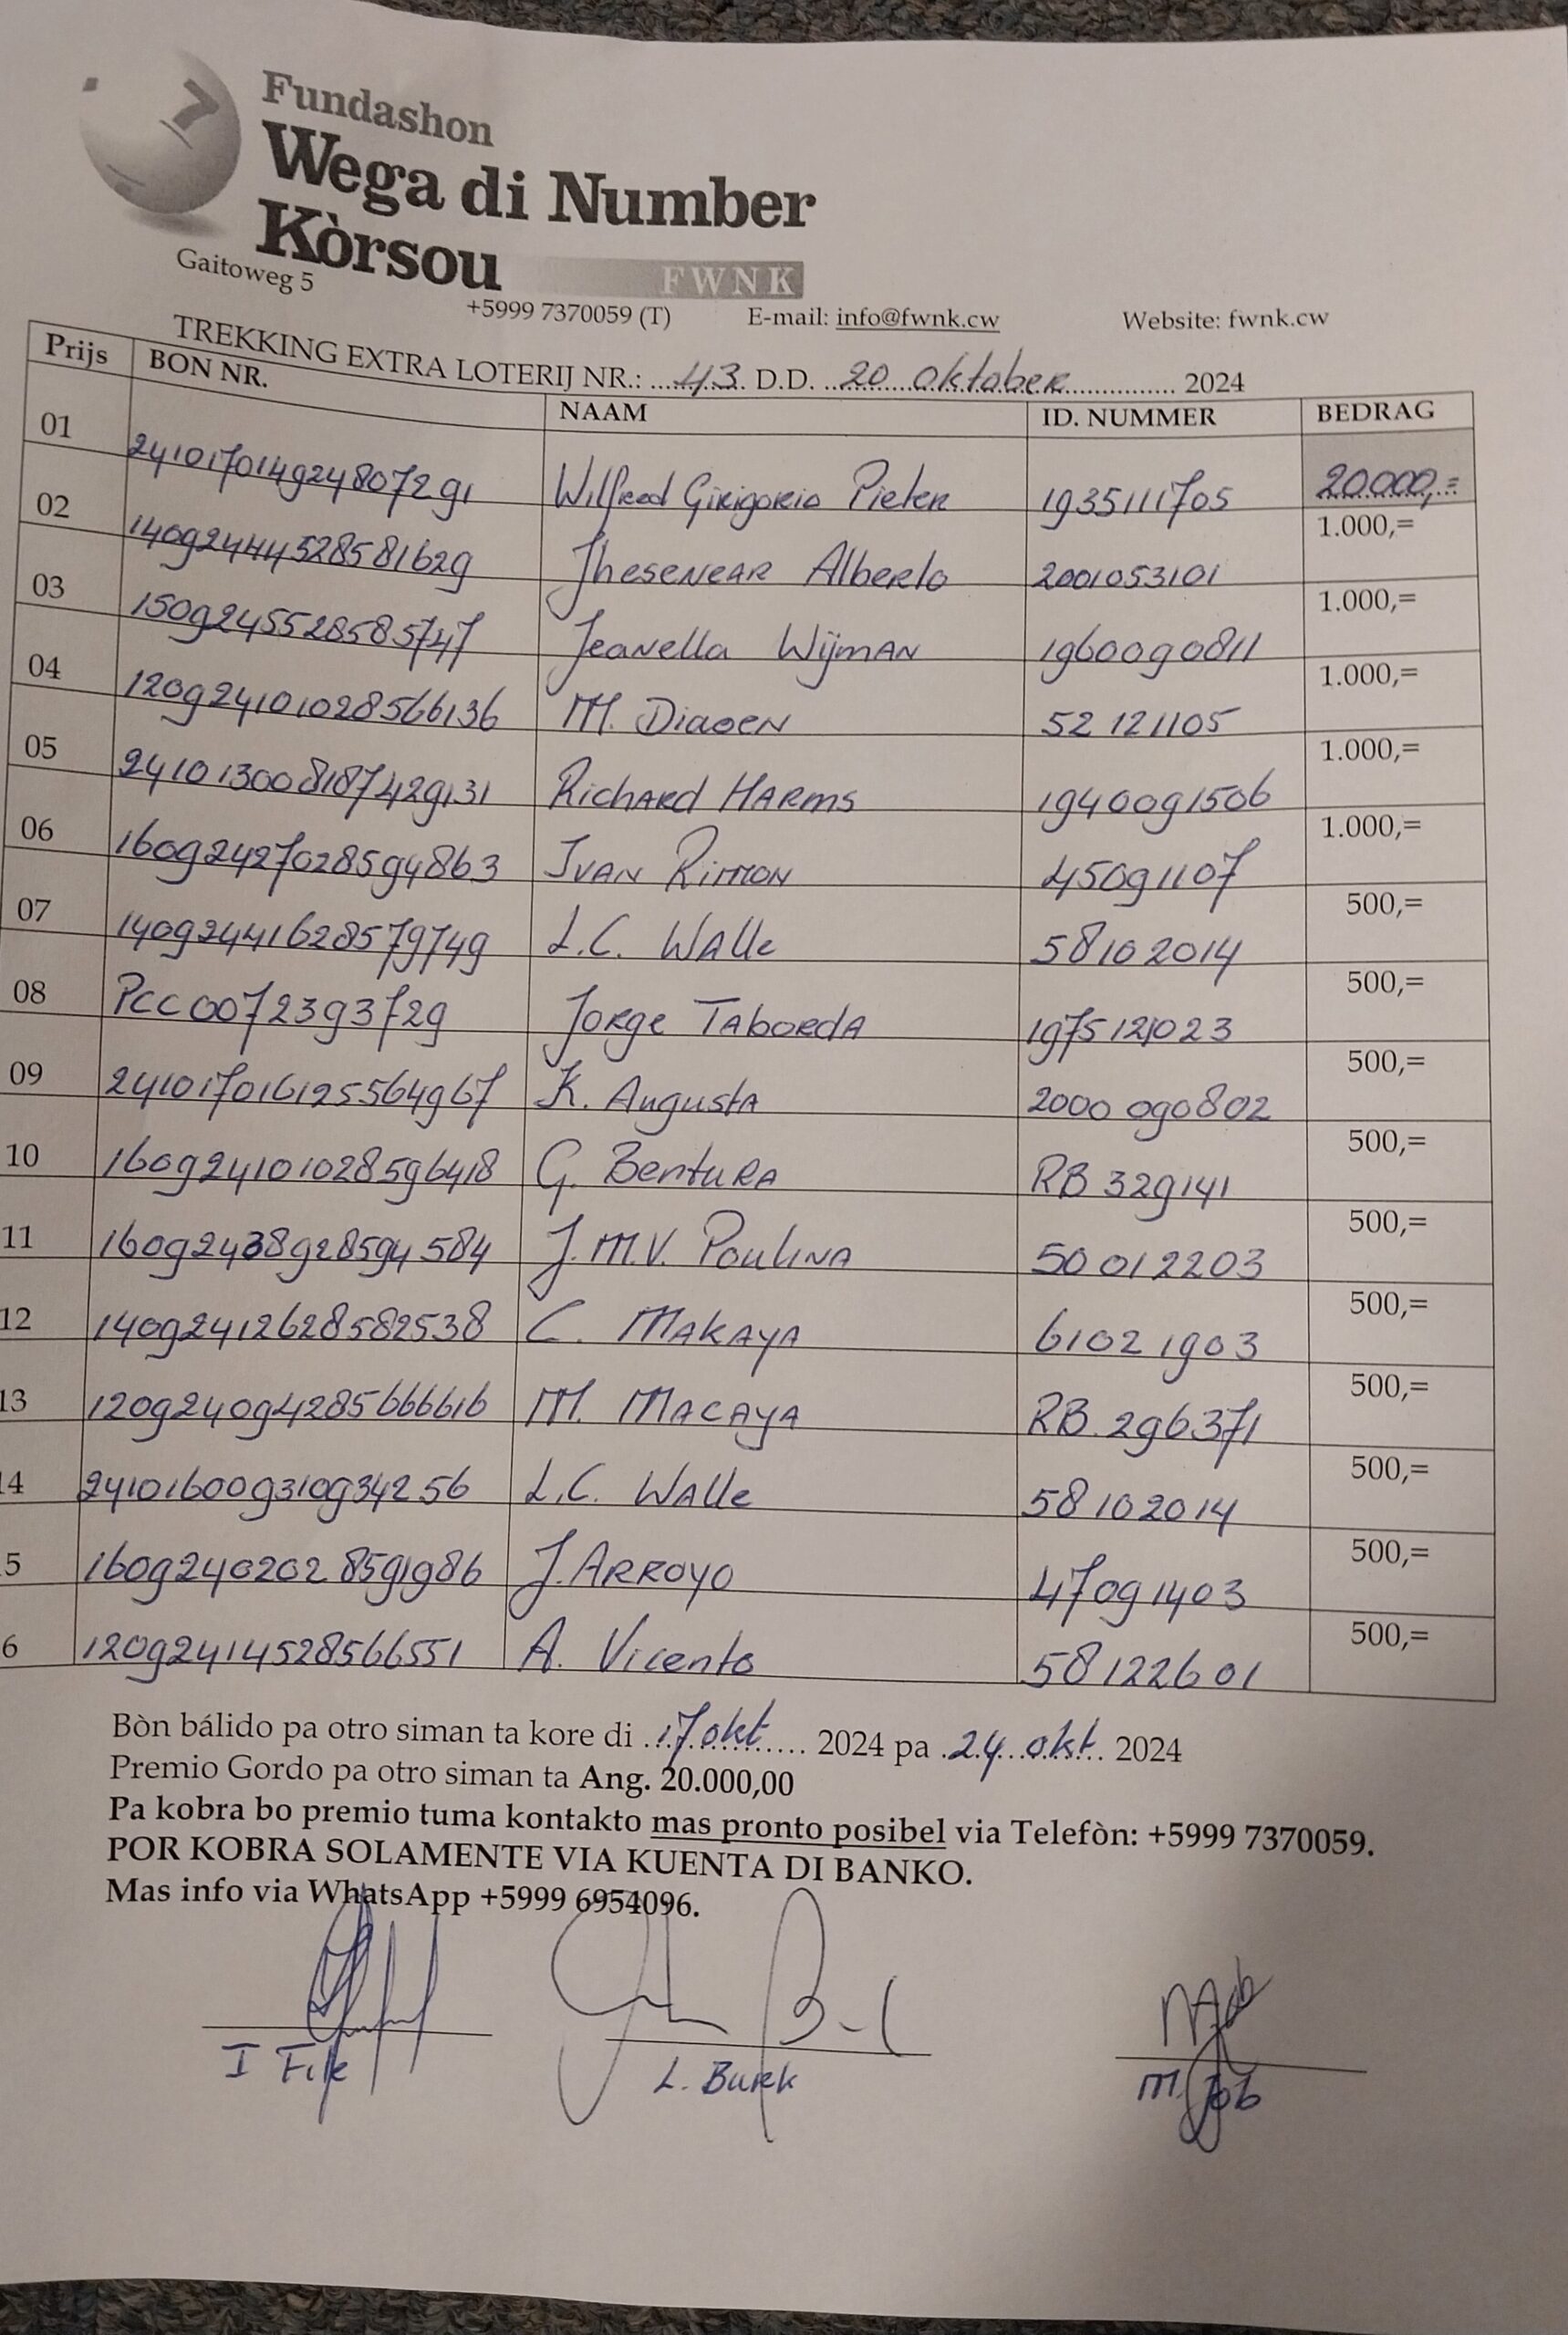 7
Fundashon
Wega di Number
Kòrsou
FWNK
Gaitoweg 5 +5999 7370059 (T) E-mail: info@fwnk.cw Website: fwnk.cw
TREKKING EXTRA LOTERIJ NR.: 43 D.D. 20 oktober 2024
Prijs BON NR. NAAM ID. NUMMER BEDRAG
01 24101701492480729 1 Wilfred Girigorio Pieter 1935111705 20.000,=
02 1409244452858 1629 Jhesenear Alberto 2001053101 1.000,=
03 150924552858 5747 Jeanella Wijman 1960090811 1.000,=
04 1209241010285 66136 M. Diaoen 52 121105 1.000,=
05 2410130081874 29131 Richard Harms 1940091506 1.000,=
06 16092427028594863 Ivan Rimon 45091107 1.000,=
07 14092441628579749 L.C. Walle 58102014 500,=
08 PCC0072393729 Jorge Taborda 1975121023 500,=
09 241017016125564967 K. Augusta 2000 090802 500,=
10 160924101028596418 G. Bentura RB 329141 500,=
11 16092438928594584 J.M.V. Poulina 50012203 500,=
12 14092412628582538 C. Makaya 61021903 500,=
13 120924094285666616 M. Macaya RB.296371 500,=
14 241016009310934256 L.C. Walle 58102014 500,=
15 160924020285 91986 J. Arroyo 47091403 500,=
16 12092414528566551 A. Vicento 58122601 500,=
Bòn bálido pa otro siman ta kore di 17 okt 2024 pa 24 okt 2024
Premio Gordo pa otro siman ta Ang. 20.000,00
Pa kobra bo premio tuma kontakto mas pronto posibel via Telefòn: +5999 7370059.
POR KOBRA SOLAMENTE VIA KUENTA DI BANKO.
Mas info via WhatsApp +5999 6954096.
L. Burk
M. Job